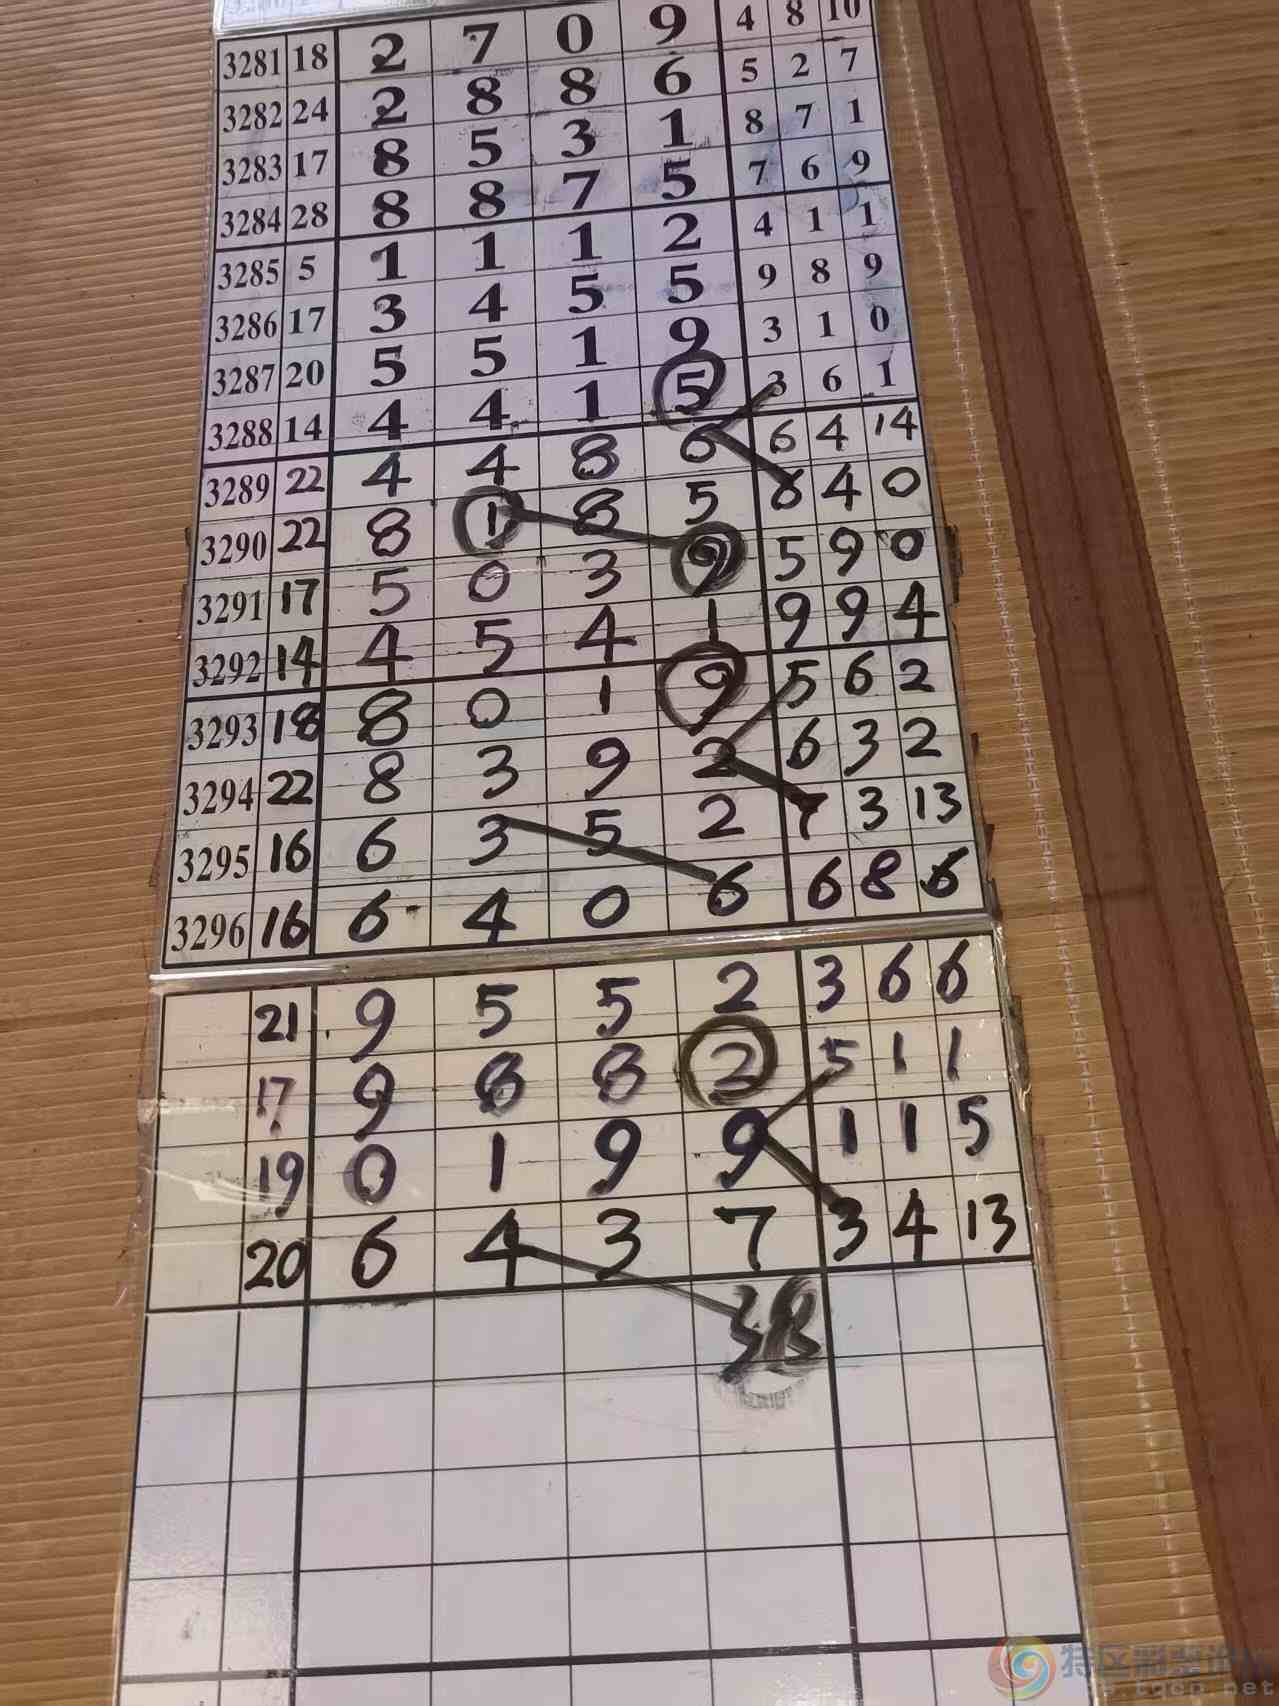 3281 18 2 7 0 9 4 8 10
3282 24 2 8 8 6 5 2 7
3283 17 8 5 3 1 8 7 1
3284 28 8 8 7 5 7 6 9
3285 5 1 1 1 2 4 1 1
3286 17 3 4 5 5 9 8 9
3287 20 5 5 1 9 3 1 0
3288 14 4 4 1 5 3 6 1
3289 22 4 4 8 6 6 4 14
3290 22 8 1 8 5 6 4 0
3291 17 5 0 3 9 5 9 0
3292 14 4 5 4 1 9 9 4
3293 18 8 0 1 9 5 6 2
3294 22 8 3 9 2 6 3 2
3295 16 6 3 5 2 7 3 13
3296 16 6 4 0 6 6 8 6
21 9 5 5 2 3 6 6
17 9 8 8 2 5 1 1
19 0 1 9 9 1 1 5
20 6 4 3 7 3 4 13
38